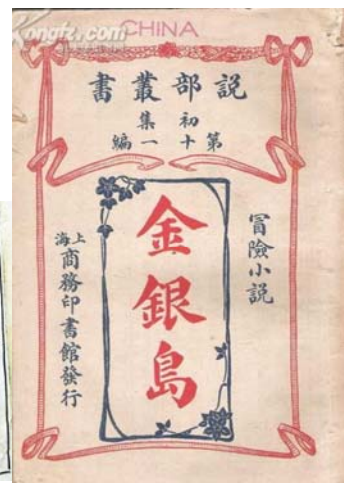 Kongfz.com
CHINA
說部叢書
初集
第十一編
冒險小說
金銀島
上海
商務印書館發行